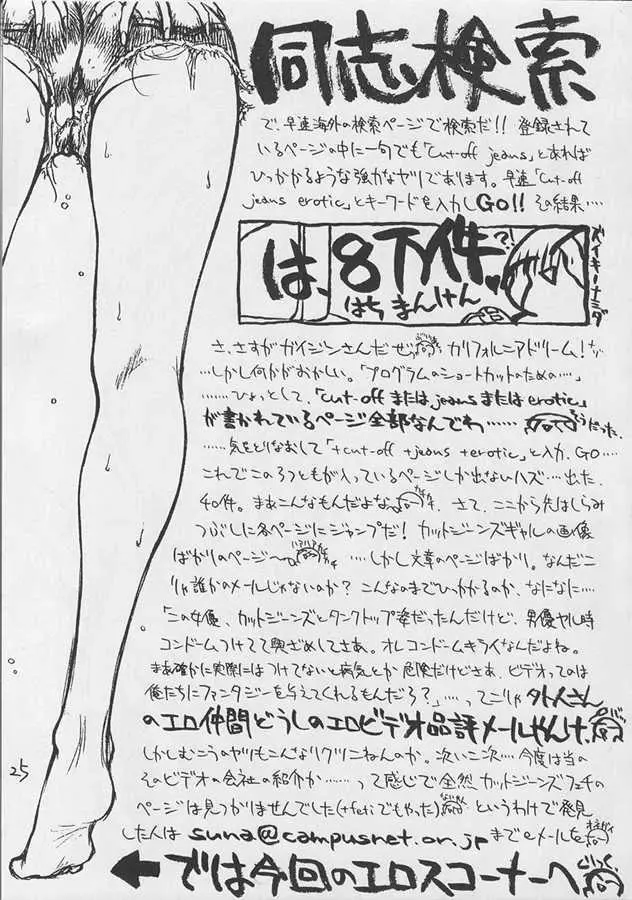 同志検索
で、早速海外の検索ページで検索だ!! 登録されて
いるページの中に一句でも「cut-off jeans」とあれば
ひっかかるような強力なヤツであります。早速「cut-off
jeans erotic」とキーワードを入力しGO!! その結果‥‥
は、8万件?!
はちまんけん
さ、さすがガイジンさんだぜ カリフォルニアドリーム!
‥‥しかし何かがおかしい。「プログラムのショートカットのための‥‥」
‥‥‥ひょっとして、「cut-off または jeans または erotic」
が書かれているページ全部なんでわ‥‥‥ そうだった
‥‥‥気をとりなおして「+cut-off +jeans +erotic」と入力、GO‥‥
これでこの3つともが入っているページしか出ないハズ‥‥出た、
40件。まあこんなもんだよな 、さて、ここから先はしらみ
つぶしに各ページにジャンプだ! カットジーンズギャルの画像
ばかりのページ〜 ‥‥しかし文章のページばかり。なんだこ
りゃ誰かのメールじゃないのか? こんなのまでひっかかるのか、なになに‥‥
「この女優、カットジーンズとタンクトップ姿だったんだけど、男優ヤル時
コンドームつけてて興ざめしてさあ。オレコンドームキライなんだよね。
まあ確かに実際にはつけてないと病気とか危険だけどさあ、ビデオってのは
俺たちにファンタジーを与えてくれるもんだろ?」‥‥ってこりゃ外人さん
のエロ仲間どうしのエロビデオ品評メールやんけ
しかしむこうのヤツもこんなノリクソこねんのか。次いこ次‥‥今度は当の
そのビデオの会社の紹介か‥‥‥って感じで全然カットジーンズフェチの
ページは見つかりませんでした(+fetiでもやった) というわけで発見
した人は suna@campusnet.or.jp までeメールを
←では今回のエロスコーナーへ
25